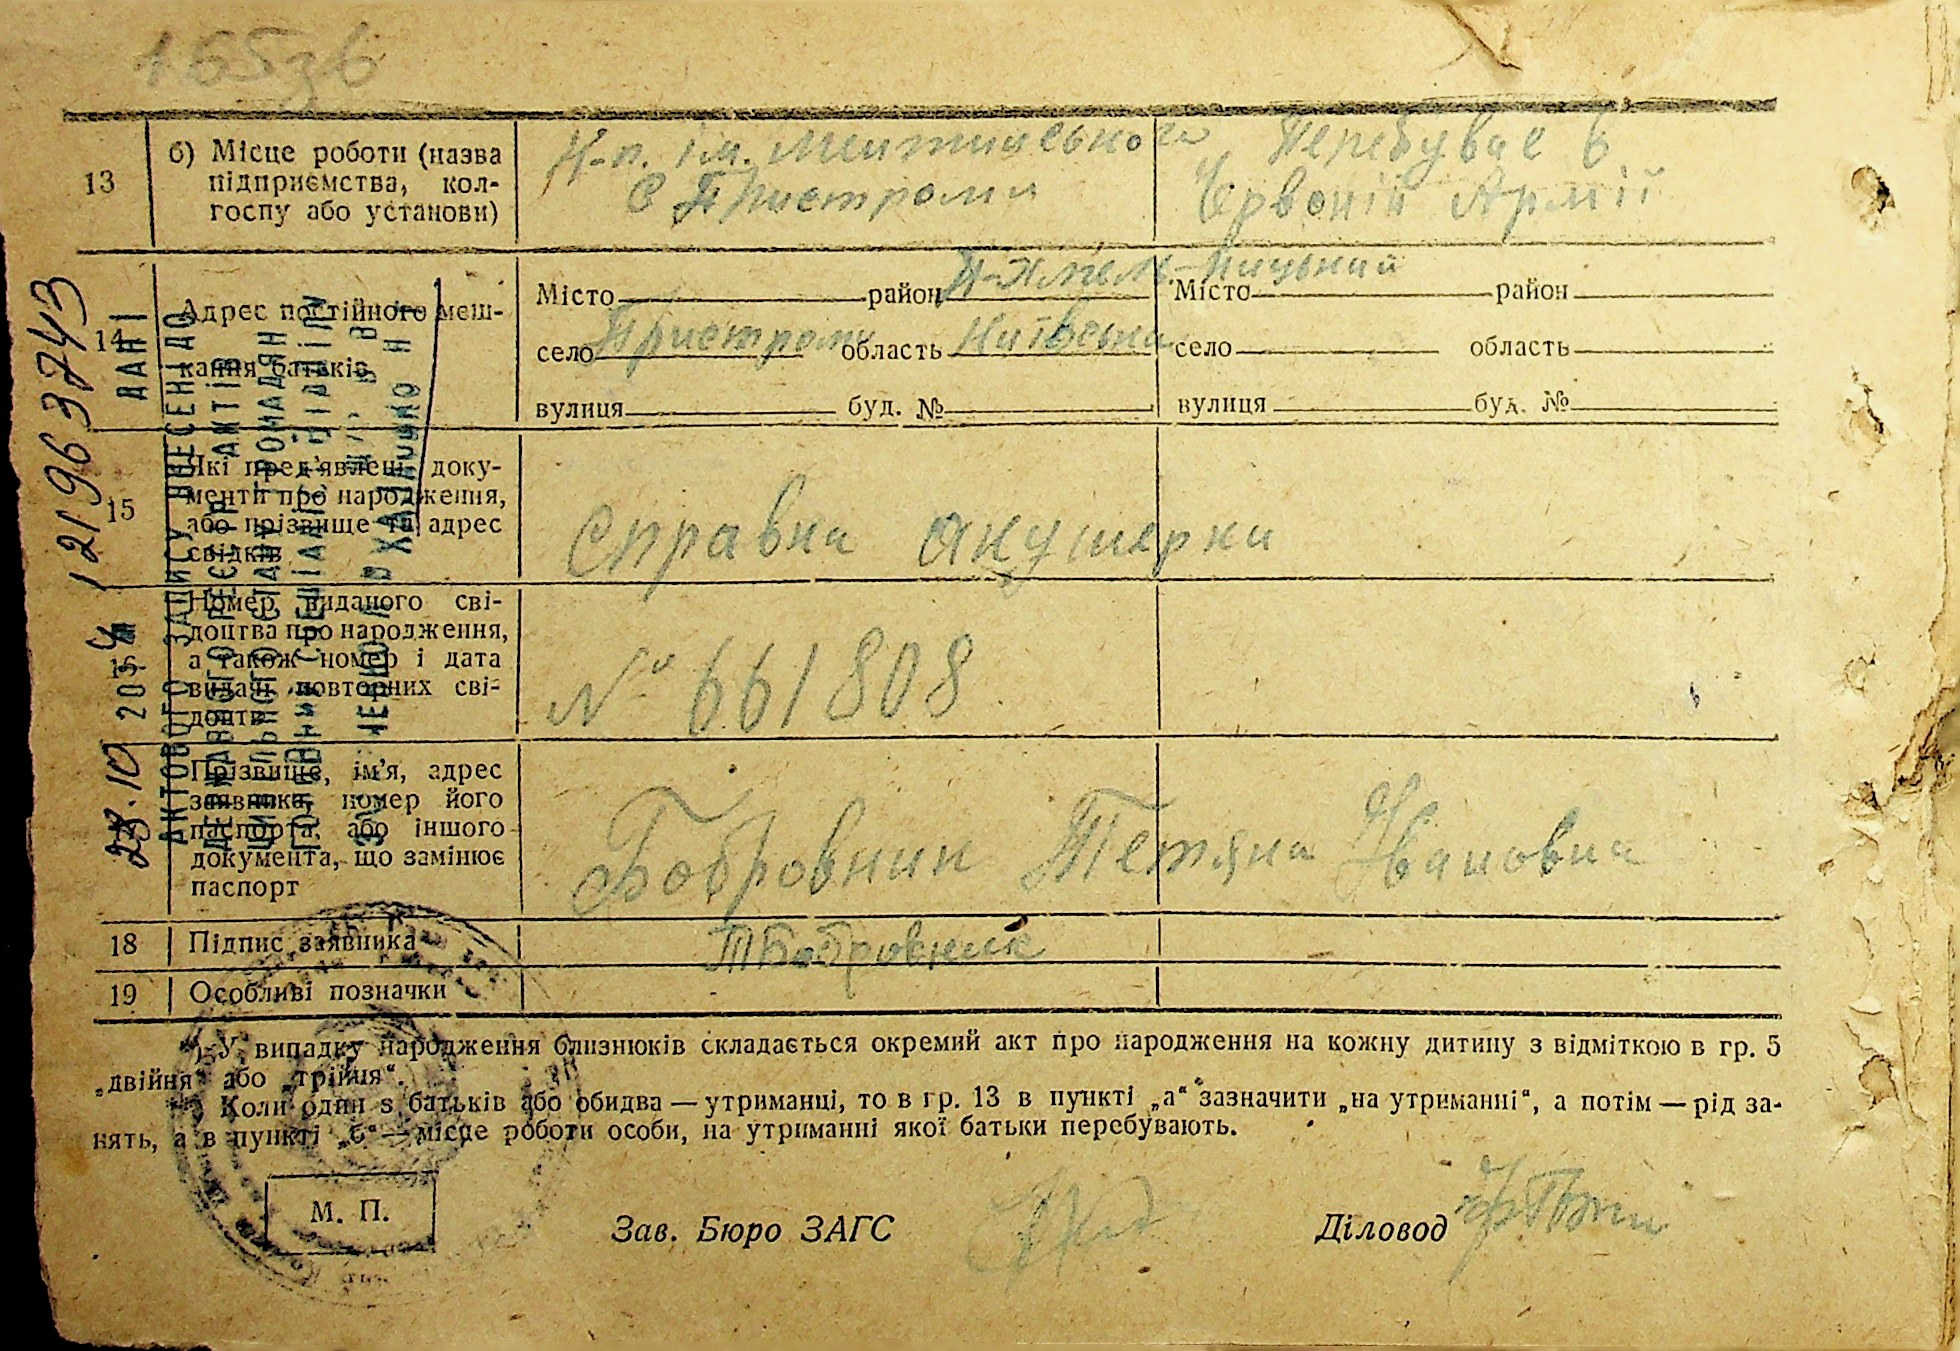 165зв
13
б) Місце роботи (назва
підприємства, кол-
госпу або установи)
К-п. ім.
с Пристроми
Перебуває в
Червоній Армії
14
Адрес постійного меш-
кання батьків
Місто район П-Хмель-ницький
село Пристроми область Київська
вулиця буд. №
Місто район
село область
вулиця буд. №
15
Які пред'явлені доку-
менти про народження,
або прізвище та адрес
свідків
Справка акушерки
16
Номер виданого сві-
доцтва про народження,
а також номер і дата
видачі повторних сві-
доцтв
№ 661808
Прізвище, ім'я, адрес
заявника, номер його
паспорта, або іншого
документа, що замінює
паспорт
Бобровник Тетяна Івановна
18
Підпис заявника
ТБобровник
19
Особливі позначки
У випадку народження близнюків складається окремий акт про народження на кожну дитину з відміткою в гр. 5
„двійня“ або „трійня“.
Коли один з батьків або обидва — утриманці, то в гр. 13 в пункті „а“ зазначити „на утриманні“, а потім — рід за-
нять, а в пункті „б“ — місце роботи особи, на утриманні якої батьки перебувають.
М. П.
Зав. Бюро ЗАГС
Діловод
12196 3743
ДАНІ
АКТОВОГО ЗАПИСУ ВНЕСЕНІ ДО
ДЕРЖАВНОГО РЕЄСТРУ АКТІВ
ЦИВІЛЬНОГО СТАНУ ГРОМАДЯН